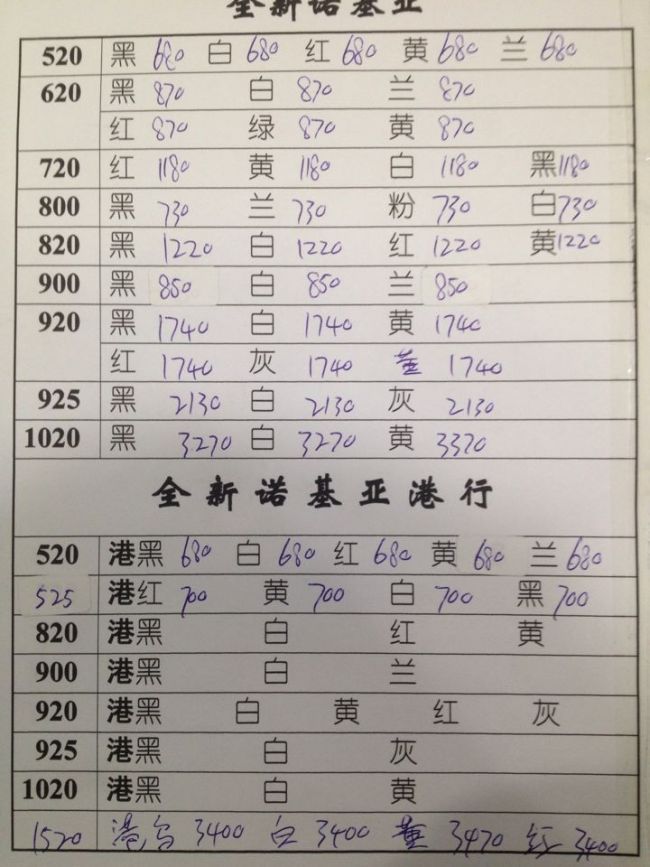 全新诺基亚
520 黑 680 白 680 红 680 黄 680 兰 680
620 黑 870 白 870 兰 870
红 870 绿 870 黄 870
720 红 1180 黄 1180 白 1180 黑 1180
800 黑 730 兰 730 粉 730 白 730
820 黑 1220 白 1220 红 1220 黄 1220
900 黑 850 白 850 兰 850
920 黑 1740 白 1740 黄 1740
红 1740 灰 1740 1740
925 黑 2130 白 2130 灰 2130
1020 黑 3270 白 3270 黄 3370
全新诺基亚港行
520 港黑 680 白 680 红 680 黄 680 兰 680
525 港红 700 黄 700 白 700 黑 700
820 港黑 白 红 黄
900 港黑 白 兰
920 港黑 白 黄 红 灰
925 港黑 白 灰
1020 港黑 白 黄
1520 港 3400 白 3400 3470 红 3400